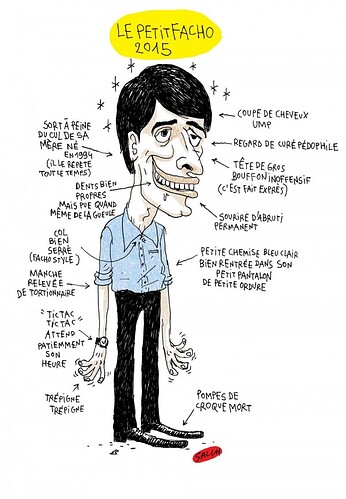 LE PETIT FACHO
2015
SORT À PEINE
DU CUL DE SA
MÈRE NÉ
EN 1994
(IL LE RÉPÈTE
TOUT LE TEMPS)
COUPE DE CHEVEUX
UMP
REGARD DE CURÉ PÉDOPHILE
TÊTE DE GROS
BOUFFON INOFFENSIF
(C'EST FAIT EXPRÈS)
DENTS BIEN
PROPRES
MAIS PUE QUAND
MÊME DE LA GUEULE
SOURIRE D'ABRUTI
PERMANENT
COL
BIEN
SERRÉ
(FACHO STYLE)
PETITE CHEMISE BLEU CLAIR
BIEN RENTRÉE DANS SON
PETIT PANTALON
DE PETITE ORDURE
MANCHE
RELEVÉE
DE TORTIONNAIRE
"TIC TAC
TIC TAC"
ATTEND
PATIEMMENT
SON
HEURE
TRÉPIGNE
TRÉPIGNE
POMPES DE
CROQUE MORT
SACCO